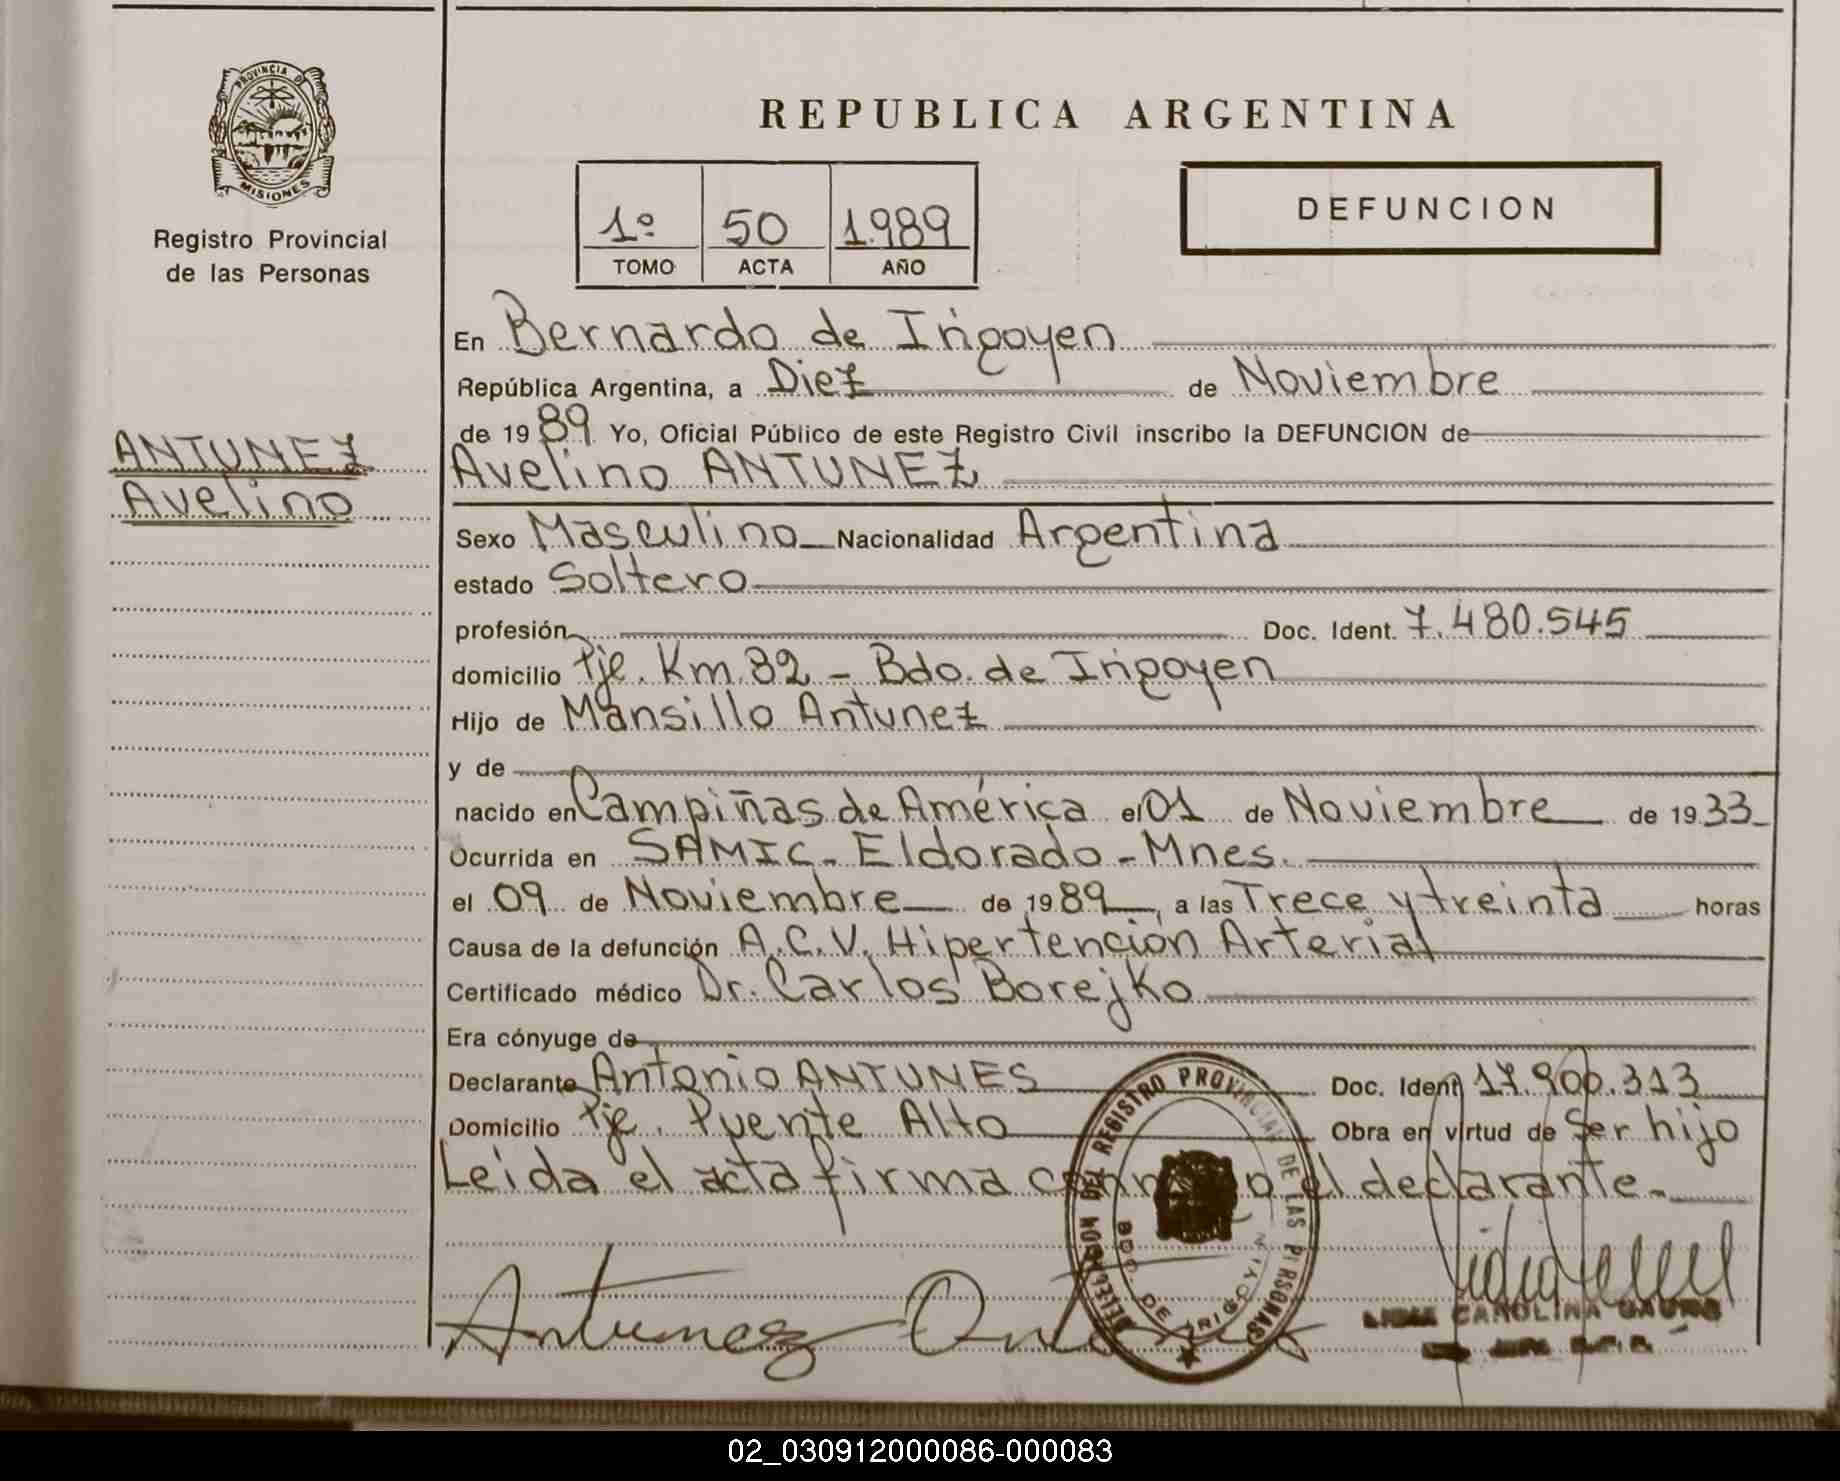 PROVINCIA DE
MISIONES
Registro Provincial
de las Personas
ANTUNEZ
Avelino
REPUBLICA ARGENTINA
1º 50 1.989
TOMO ACTA AÑO
DEFUNCION
En Bernardo de Irigoyen
República Argentina, a Diez de Noviembre
de 1989 Yo, Oficial Público de este Registro Civil inscribo la DEFUNCION de
Avelino ANTUNEZ
Sexo Masculino Nacionalidad Argentina
estado Soltero
profesión Doc. Ident. 7.480.545
domicilio Pje. Km. 82 - Bdo. de Irigoyen
Hijo de Mansillo Antunez
y de
nacido en Campiñas de América el 01 de Noviembre de 1933
Ocurrida en SAMIC - Eldorado - Mnes.
el 09 de Noviembre de 1989, a las Trece y treinta horas
Causa de la defunción A.C.V. Hipertención Arterial
Certificado médico Dr. Carlos Borejko
Era cónyuge de
Declarante Antonio ANTUNES Doc. Ident 17.900.313
Domicilio Pje. Puente Alto Obra en virtud de Ser hijo
Leida el acta firma conmigo el declarante.
DELEGACION DEL REGISTRO PROVINCIAL DE LAS PERSONAS
BDO. DE IRIGOYEN
Antunez Antonio
CAROLINA
02_030912000086-000083